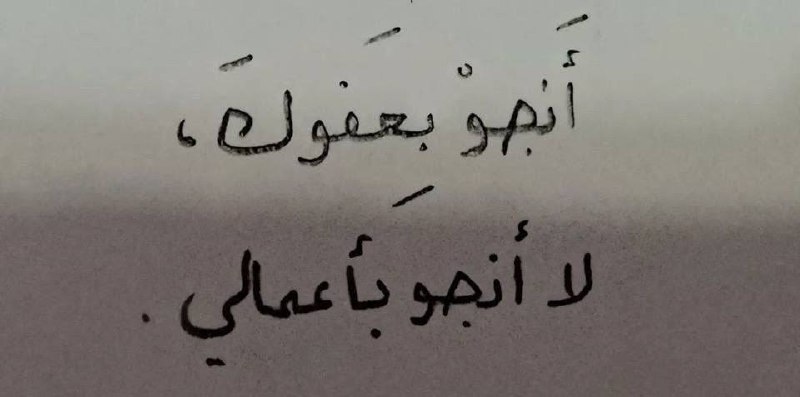 أَنجوْ بعَفوكَ،
لا أنجو بأَعمالي.